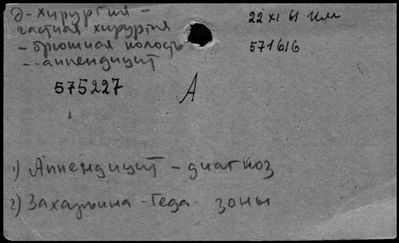 Э - хирургия -
частная хирургия
- брюшная полость
- - аппендицит
22 XI 61
571616
575227
А
1) Аппендицит - диагноз
2) Захарьина - Геда - зоны